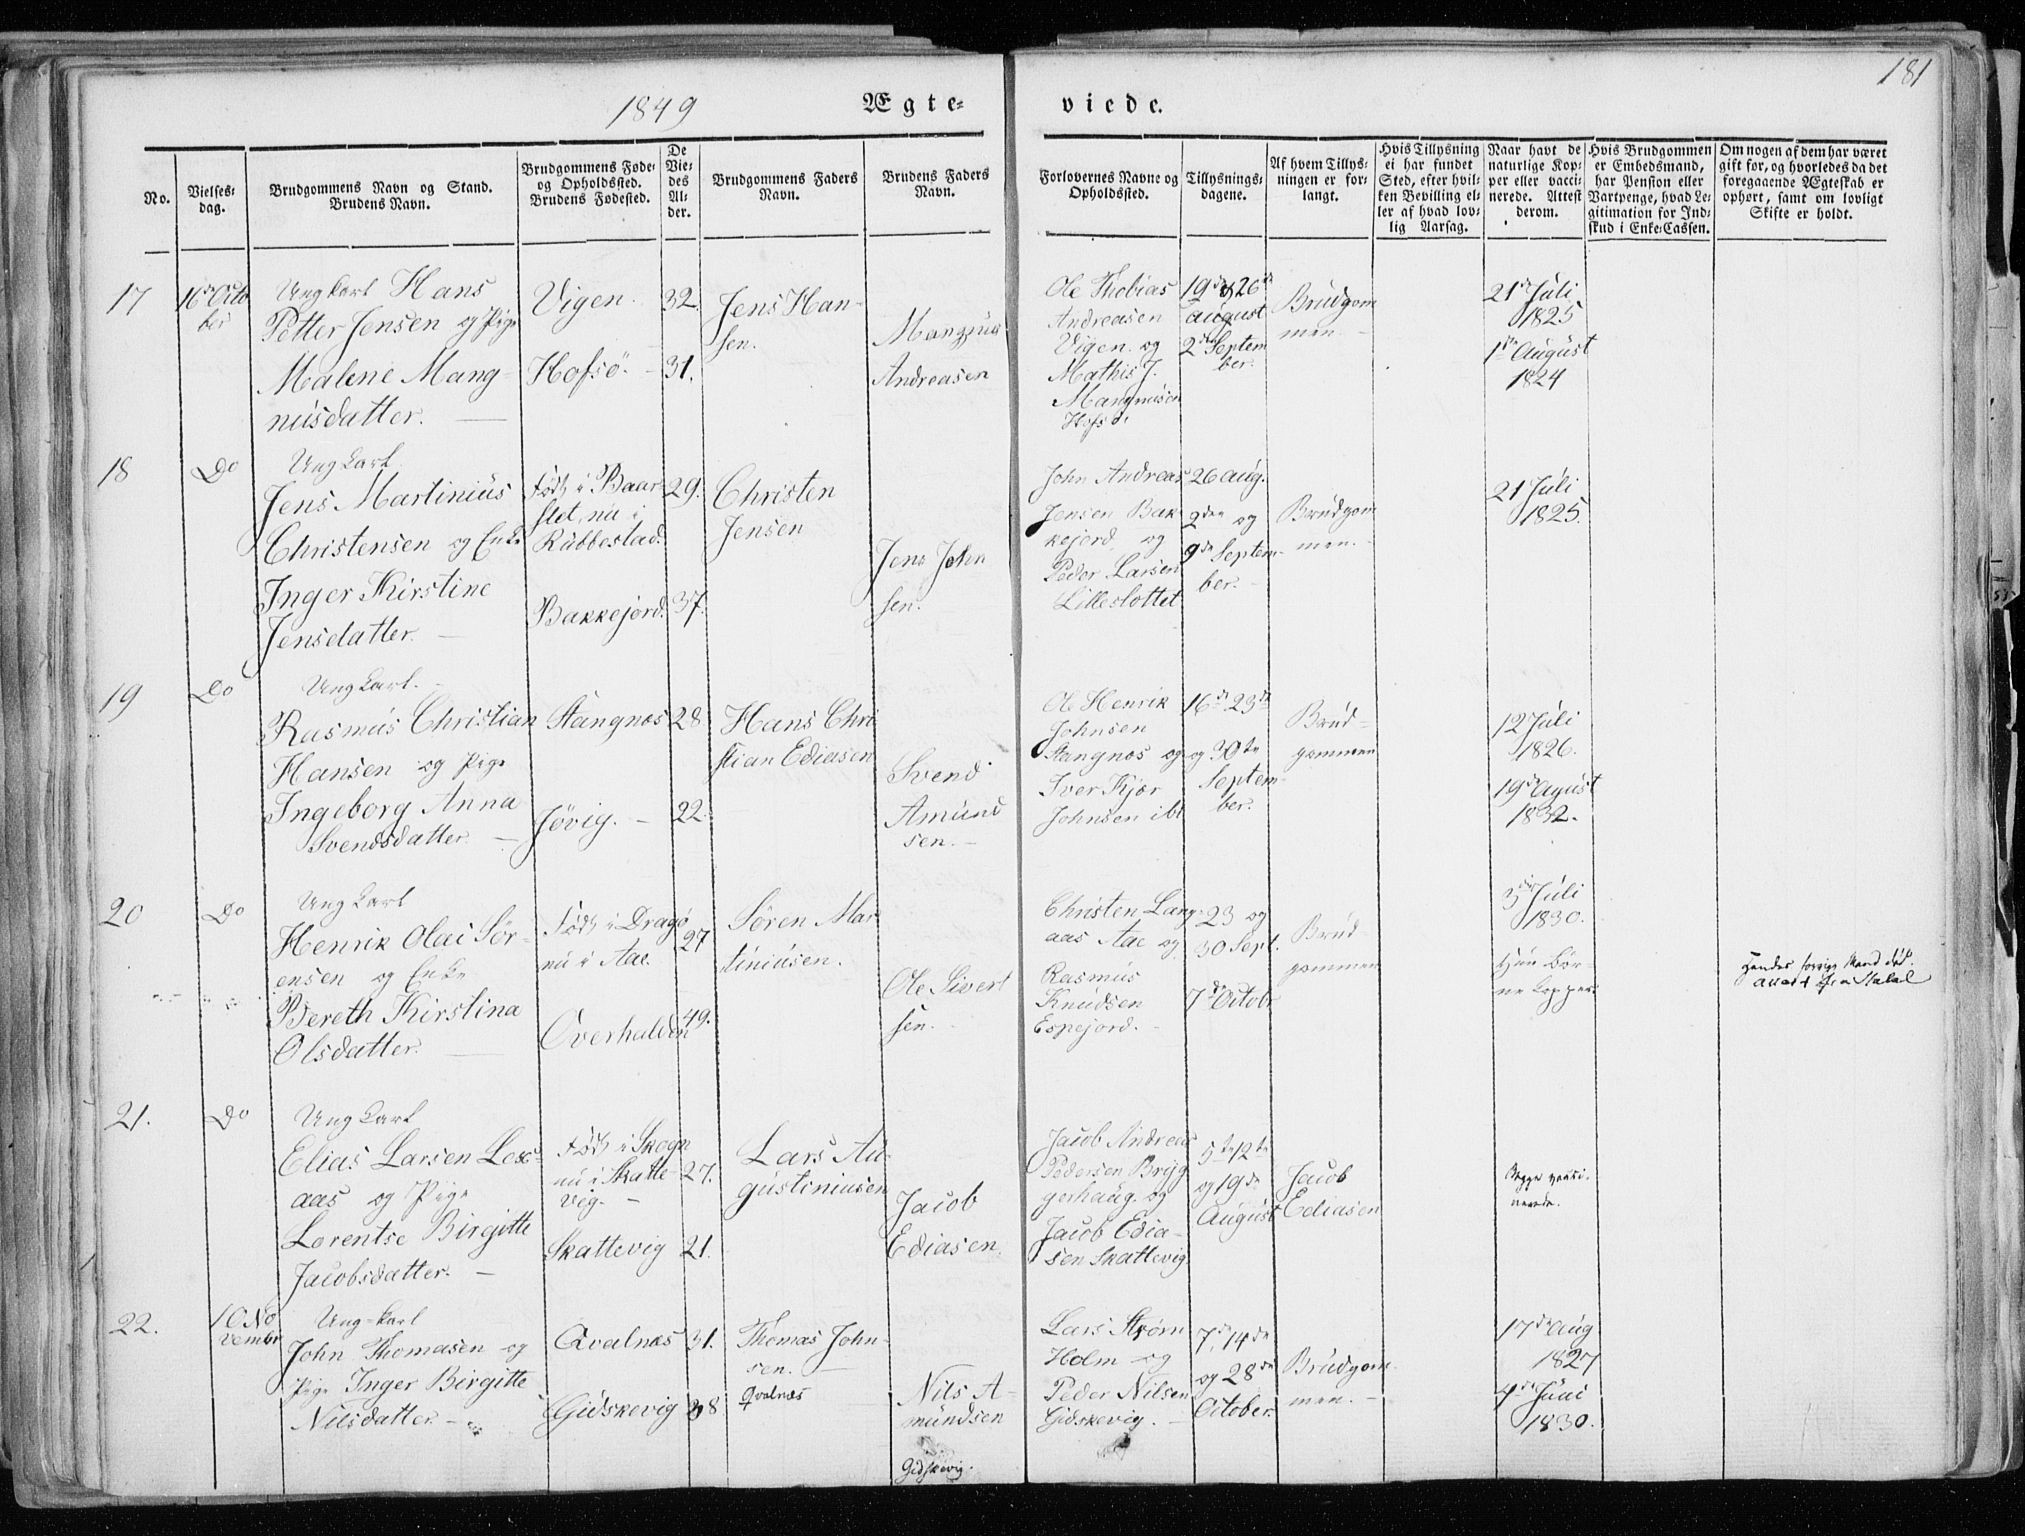 181
1849
Ægte-
viede.
No.
Vielses-
dag.
Brudgommens Navn og Stand.
Brudens Navn.
Brudgommens Føde-
og Opholdssted.
Brudens Fødested.
De
Vie-
des
Al-
der.
Brudgommens Faders
Navn.
Brudens Faders
Navn.
Forlovernes Navne og
Opholdssted.
Tillysnings-
dagene.
Af hvem Tillys-
ningen er for-
langt.
Hvis Tillysning
ei har fundet
Sted, efter hvil-
ken Bevilling el-
ler af hvad lov-
lig Aarsag.
Naar havt de
naturlige Kop-
per eller vacci-
nerede. Attest
derom.
Hvis Brudgommen
er Embedsmand,
har Pension eller
Vartpenge, hvad Le-
gitimation for Ind-
skud i Enke-Cassen.
Om nogen af dem har været
gift før, og hvorledes da det
foregaaende Ægteskab er
ophørt, samt om lovligt
Skifte er holdt.
17
16de Octo
ber
Ungkarl Hans
Petter Jensen og Pige
Malene Mang-
nusdatter.
Vigen.
Hofsö.
32.
31.
Jens Han-
sen.
Mangnus
Andreasen
Ole Thobias
Andreasen
Vigen. og
Mathis J.
Mangnusen
Hofsö.
19de & 26de
august
2den Septem
ber.
Brudgom
men.
21de Juli
1825
1ste August
1824
18
Do
Ungkarl
Jens Martinius
Christensen og Enke
Inger Kirstine
Jensdatter.
Født i Baar-
slet, nu i
Rubbestad.
Bakkejord.
29.
37.
Christen
Jensen
Jens John
sen.
John Andreas
Jensen Bak-
kejord, og
Peder Larsen
Lilleslottet
26 aug.
2den og
9de Septem-
ber.
Brudgom
men.
21 Juli
1825.
19
Do
Ungkarl.
Rasmus Christian
Hansen og Pige
Ingeborg Anna
Svendsdatter.
Stangnes
Jövig.
28
22.
Hans Chri
stian Ediasen
Svend
Amund
sen.
Ole Henrik
Johnsen
Stangnes og
Iver Kjær
Johnsen ibd
16de 23de
og 30te
Septem-
ber.
Brud-
gommen
12 Juli
1826.
19de August
1832.
20
Do
Ungkarl
Henrik Olai Sör-
ensen og Enke
Bereth Kirstina
Olsdatter.
Født i Dragö
nu i Aae.
Overhalden
27
49.
Sören Mar
tiniusen.
Ole Sivert
sen.
Christen Lang-
aas Aae og
Rasmus
Knudsen
Espejord.
23 og
30 Sept.
7de Octobr
Brud-
gommen
3die Juli
1830.
Hun bör-
ne kopper
Hendes forrige Mand död.
21.
Do
Ungkarl
Elias Larsen Lex-
aas og Pige
Lorentse Birgitte
Jacobsdatter.
Født i Skogn
nu i Skatte-
vig.
Skattevig
27.
21.
Lars Au-
gustiniusen
Jacob
Ediasen.
Jacob Andreas
Pedersen Bryg
gerhaug. og
Jacob Edia-
sen Skattevig
5te 12te
og 19de
August
Jacob
Ediasen
Begge vacci-
nerede.
22.
10 No
vembr
Ung-karl
John Thomasen og
Pige Inger Birgitte
Nilsdatter.
Qvalnes
Gidskevig
31.
38
Thomas John-
sen.
Qvalnæs
Nils A-
mundsen
Gidskevig.
Lars Strøm
Holm og
Peder Nilsen
Gidskevig.
7de, 14de
og 28de
October.
Brudgom-
men.
17de Aug
1827
4de Juni
1830.